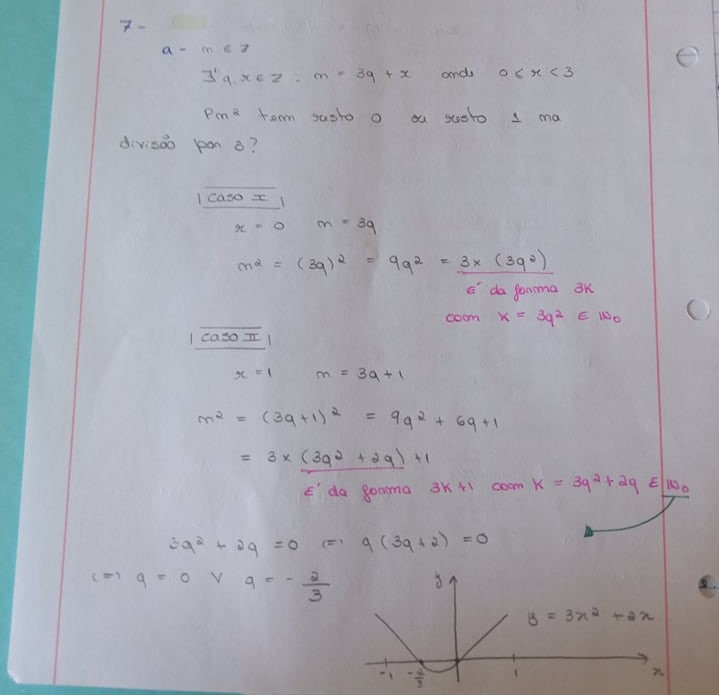 7-
a - m ∈ Z
∃¹ q, r ∈ Z : m = 3q + r onde 0 < r < 3
Pm² tem resto 0 ou resto 1 ma
divisão por 3?
| Caso I |
r = 0 m = 3q
m² = (3q)² = 9q² = 3 × (3q²)
É da forma 3K
com K = 3q² ∈ IN₀
| Caso II |
r = 1 m = 3q + 1
m² = (3q+1)² = 9q² + 6q + 1
= 3 × (3q² + 2q) + 1
É da forma 3K+1 com K = 3q² + 2q ∈ IN₀
3q² + 2q = 0 (=) q (3q+2) = 0
(=) q = 0 V q = - 2/3
y
y = 3x² + 2x
-1 -2/3 1 x